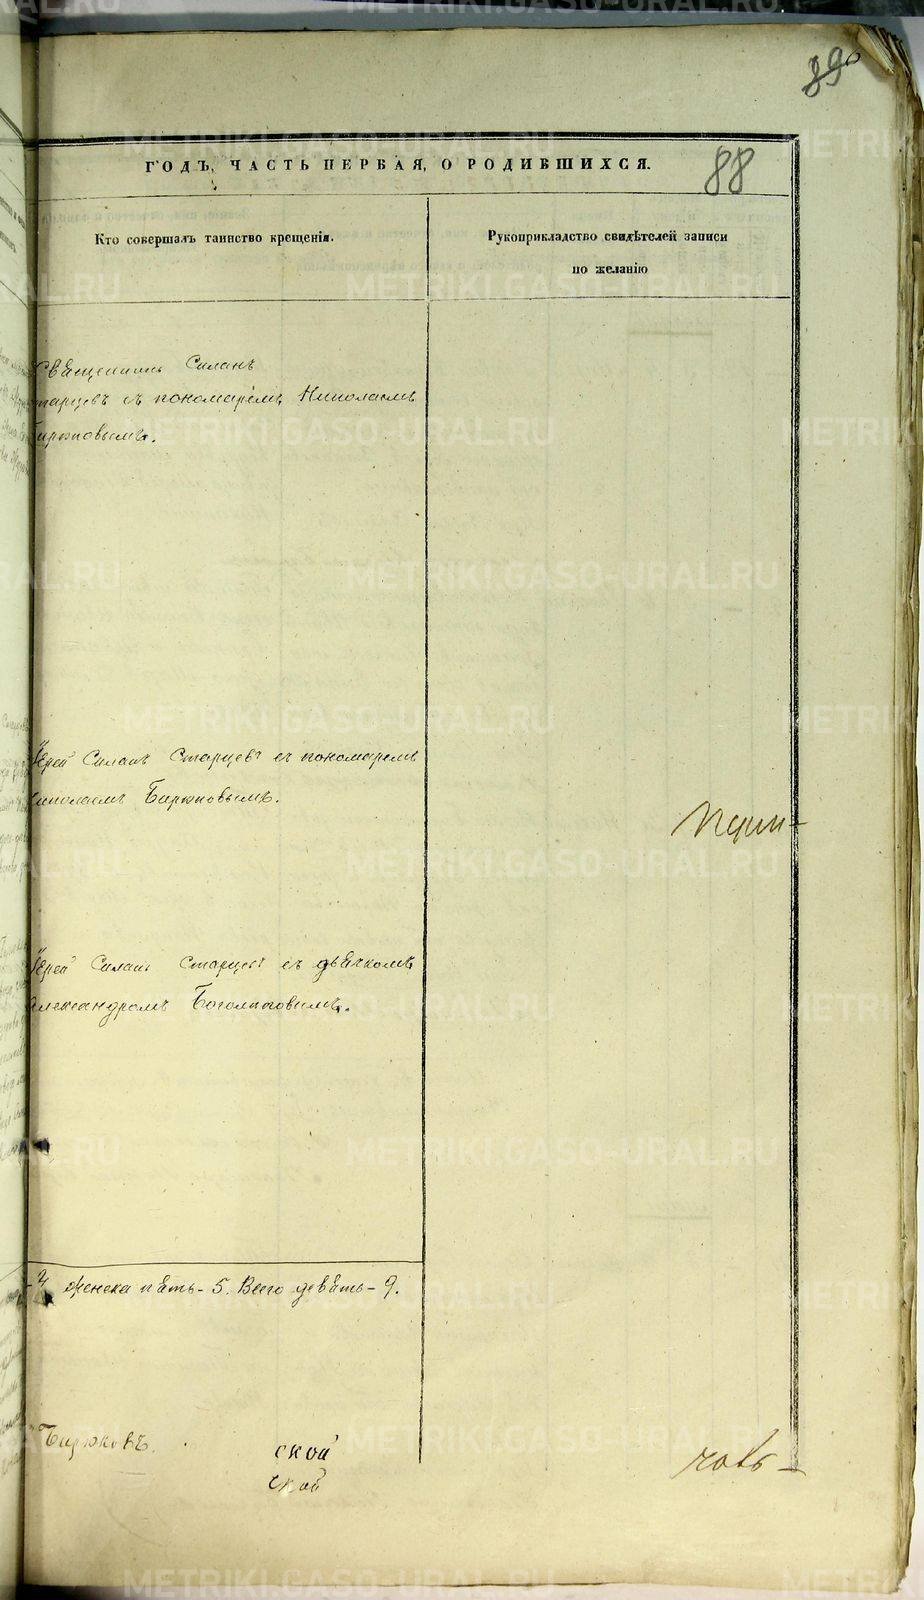 89
88
ГОДЪ, ЧАСТЬ ПЕРВАЯ, О РОДИВШИХСЯ.
Кто совершалъ таинство крещенія.
Рукоприкладство свидѣтелей записи
по желанію
Священникъ Силанъ
Старцевъ съ пономаремъ Николаемъ
Бирюковымъ.
Іерей Силанъ Старцевъ съ пономаремъ
Николаемъ Бирюковымъ.
Іерей Силанъ Старцевъ съ дьячкомъ
Александромъ Боголюбовымъ.
женска пять - 5. Всего девять - 9.
Бирюковъ.
ской
ской
METRIKI.GASO-URAL.RU